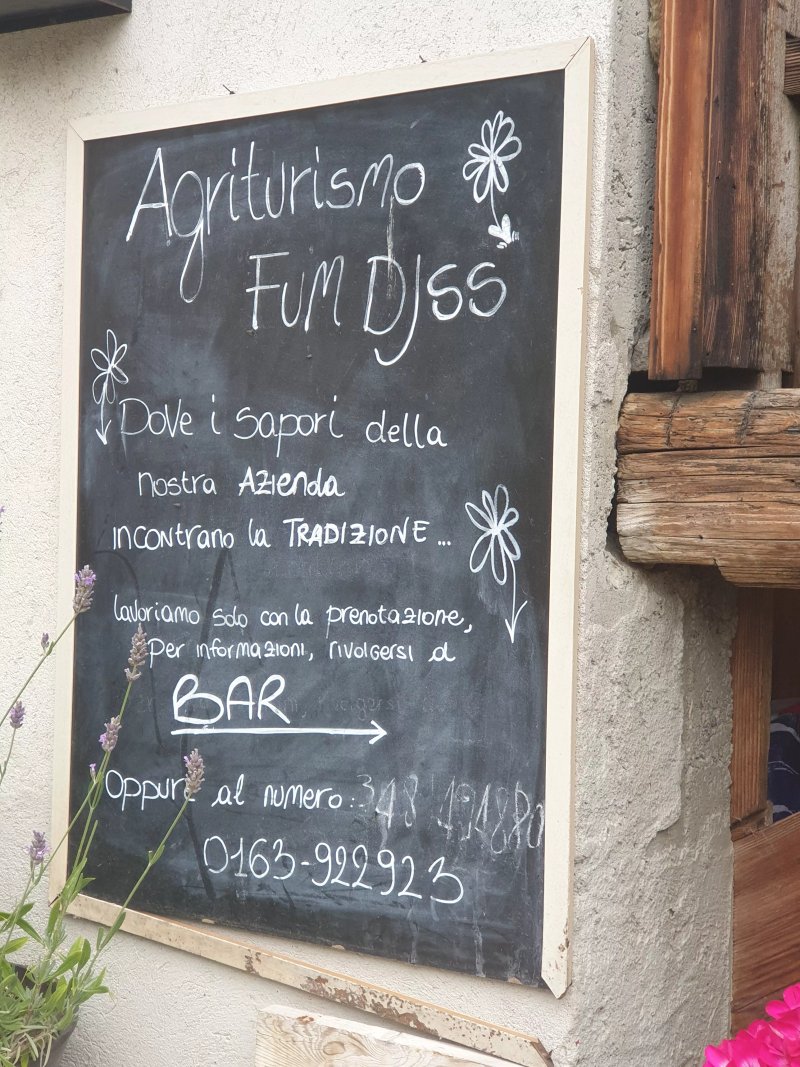 Agriturismo
FUM DJSS
Dove i sapori della
nostra Azienda
incontrano la TRADIZIONE ...
lavoriamo solo con la prenotazione,
Per informazioni, rivolgersi al
BAR
Oppure al numero:
0163-922923